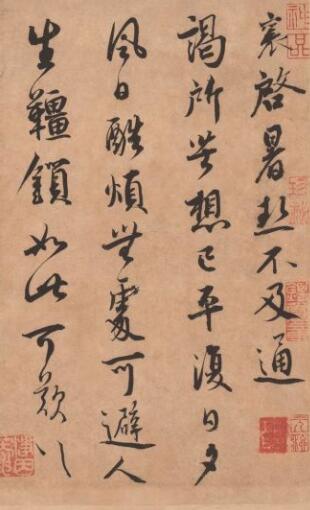 襄啓暑熱不及通
謁所苦想已平復日夕
風日酷煩無處可避人
生韁鎖如此可歎〻